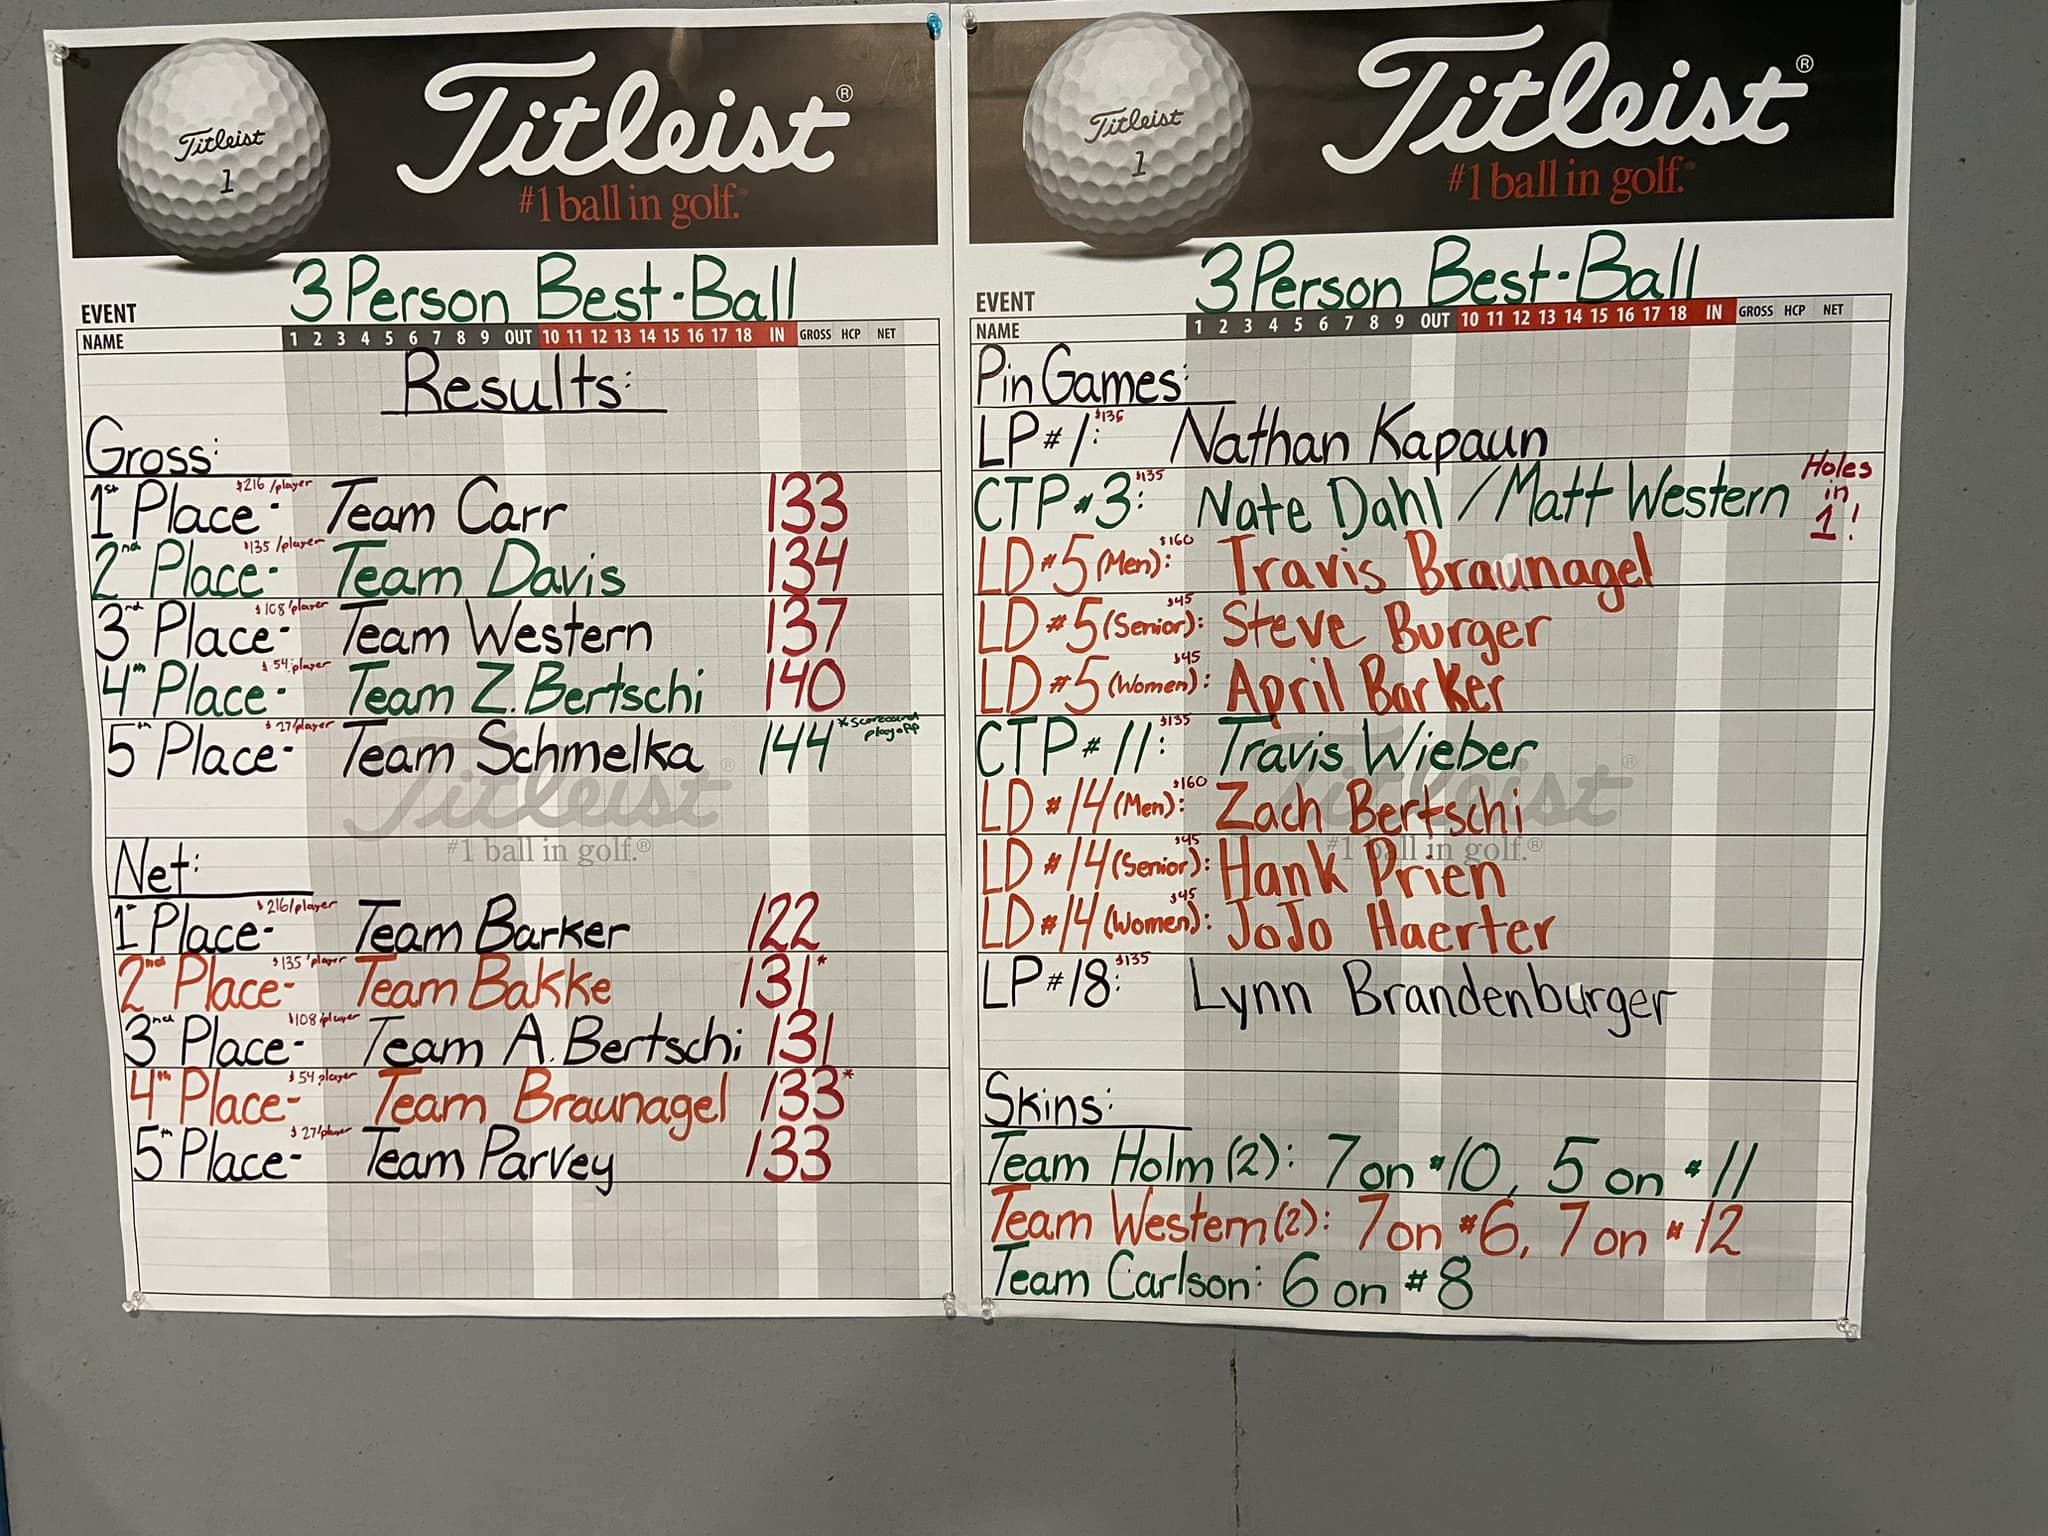 Titleist
1
Titleist®
#1 ball in golf.®
EVENT 3 Person Best-Ball
NAME 1 2 3 4 5 6 7 8 9 OUT 10 11 12 13 14 15 16 17 18 IN GROSS HCP NET
Results:
Gross:
1st Place- $216/player Team Carr 133
2nd Place- $135/player Team Davis 134
3rd Place- $108/player Team Western 137
4th Place- $54/player Team Z. Bertschi 140
5th Place- $27/player Team Schmelka 144 *Scorecard playoff
Titleist®
#1 ball in golf.®
Net:
1st Place- $216/player Team Barker 122
2nd Place- $135/player Team Bakke 131*
3nd Place- $108/player Team A. Bertschi 131
4th Place- $54 player Team Braunagel 133*
5th Place- $27/player Team Parvey 133
Titleist
1
Titleist®
#1 ball in golf.®
EVENT 3 Person Best-Ball
NAME 1 2 3 4 5 6 7 8 9 OUT 10 11 12 13 14 15 16 17 18 IN GROSS HCP NET
Pin Games:
LP #1: $135 Nathan Kapaun
CTP #3: $135 Nate Dahl / Matt Western Holes in 1!
LD #5 (Men): $160 Travis Braunagel
LD #5 (Senior): $45 Steve Burger
LD #5 (Women): $45 April Barker
CTP #11: $135 Travis Wieber
LD #14 (Men): $160 Zach Bertschi
Titleist®
LD #14 (Senior): $45 Hank Prien
#1 ball in golf.®
LD #14 (Women): $45 JoJo Haerter
LP #18: $135 Lynn Brandenburger
Skins:
Team Holm (2): 7 on #10, 5 on #11
Team Western (2): 7 on #6, 7 on #12
Team Carlson: 6 on #8